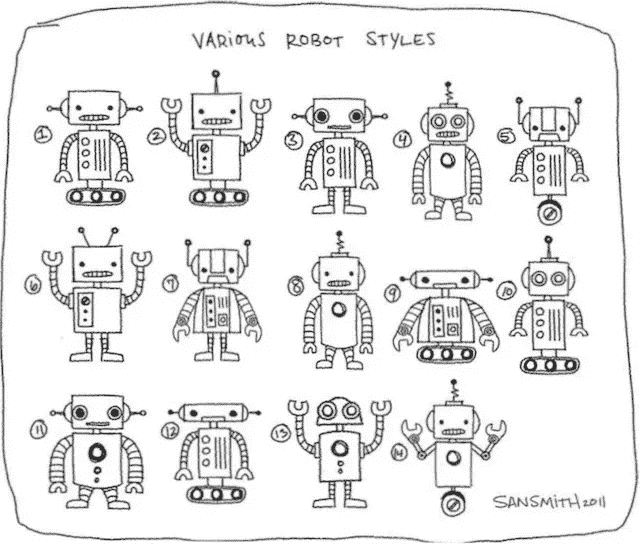 VARIOUS ROBOT STYLES
1 2 3 4 5
6 7 8 9 10
11 12 13 14
SANSMITH 2011